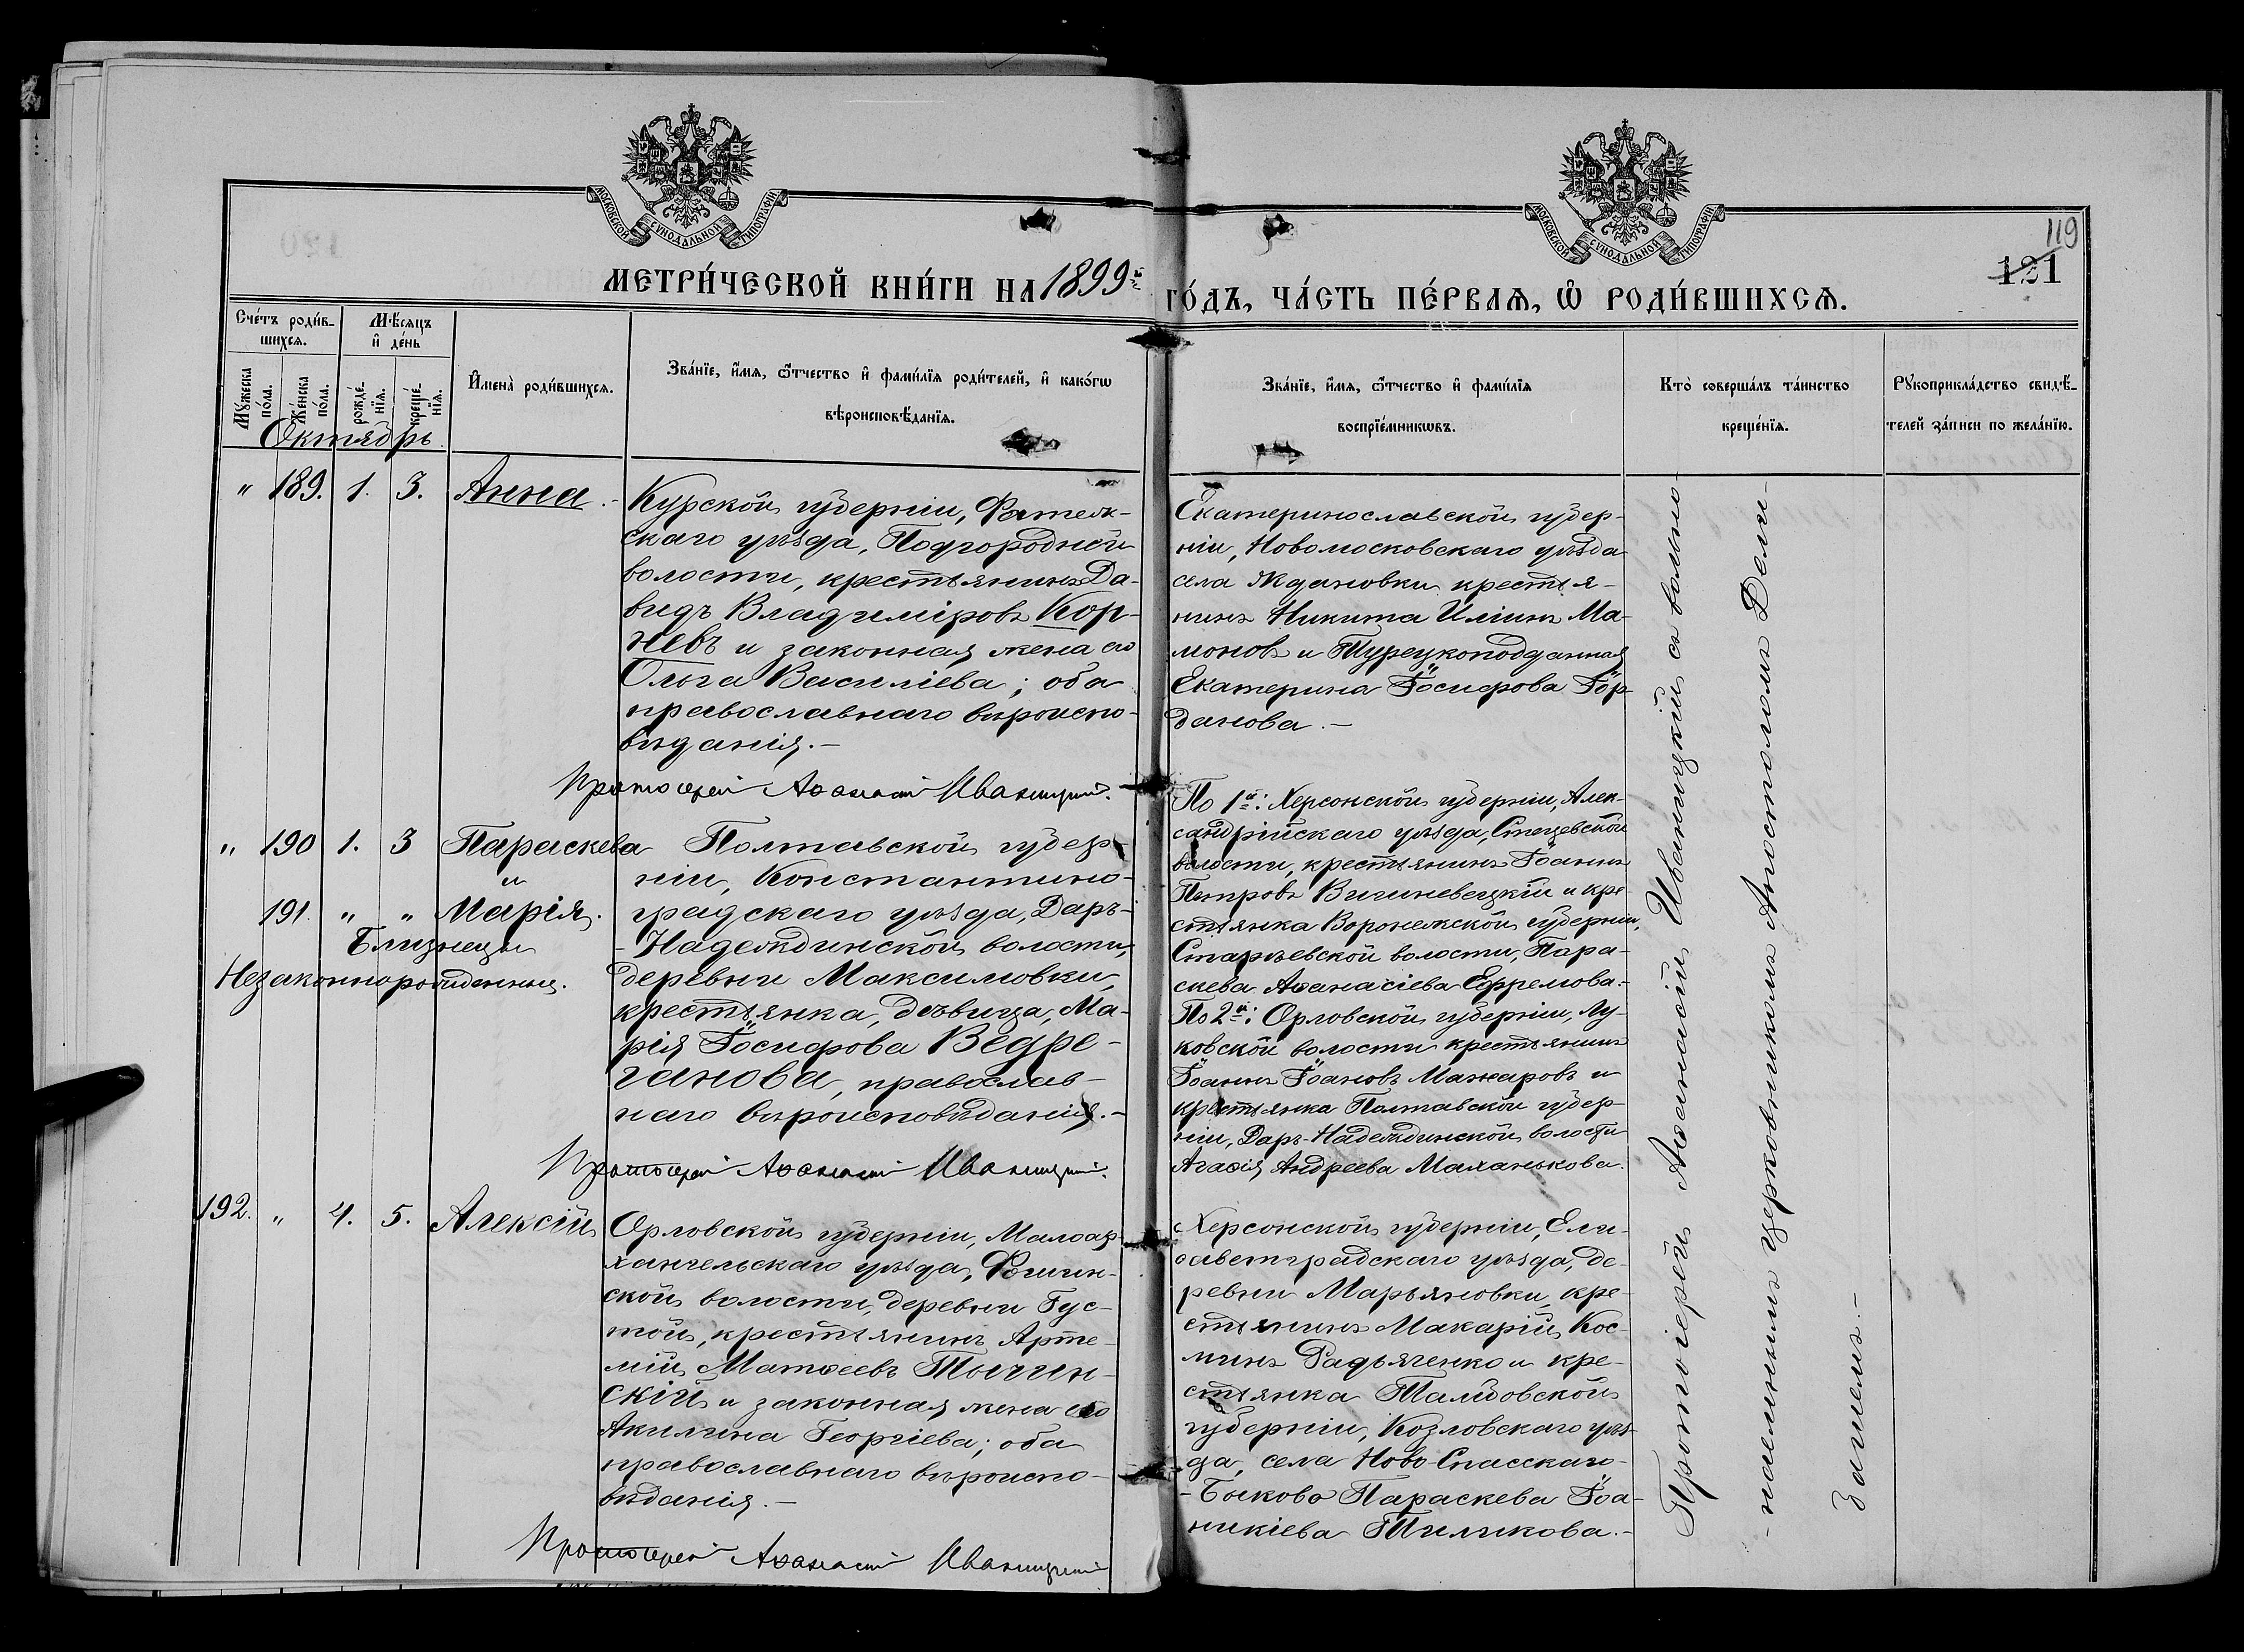 МОСКОВСКОЙ СѴНОДАЛЬНОЙ ТИПОГРАФІИ
МОСКОВСКОЙ СѴНОДАЛЬНОЙ ТИПОГРАФІИ
119
121
МЕТРИ́ЧЕСКОЙ КНИ́ГИ НА 1899й ГО́ДЪ, ЧА́СТЬ ПЕ́РВАѦ, Ѡ РОДИ́ВШИХСѦ.
Сче́тъ роди́в-
шихсѧ.
Мѣ́сѧцъ
и҆ де́нь
Мꙋ́жеска
по́ла.
Же́нска
по́ла.
рожде́-
нїѧ.
креще́-
нїѧ.
И҆мена̀ роди́вшихсѧ.
Зва́нїе, и҆́мѧ, ѻ҆́тчество и҆ фами́лїѧ роди́телей, и҆ како́гѡ
вѣроисповѣ́данїѧ.
Зва́нїе, и҆́мѧ, ѻ҆́тчество и҆ фами́лїѧ
воспрїе́мникѡвъ.
Кто̀ соверша́лъ та́инство
креще́нїѧ.
Рꙋкоприкла́дство свидѣ́-
телей за́писи по жела́нїю.
Октябрь
" 189. 1. 3. Анна.
Курской губерніи, Фатеж-
скаго уѣзда, Подгородней
волости, крестьянинъ Да-
видъ Владиміровъ Кор-
невъ и законная жена его
Ольга Василіева; оба
православнаго вѣроиспо-
вѣданія.-
Протоіерей Аѳанасій Иваницкій.
Екатеринославской губер-
ніи, Новомосковскаго уѣзда
села Ждановки крестья-
нинъ Никита Иліинъ Ма-
моновъ и Турецкоподданная
Екатерина Іосифова Іор-
данова.-
" 190 1. 3 Параскева
и
191. " " Марія.
Близнецы
Незаконнорожденныя.
Полтавской губер-
ніи, Константино-
градскаго уѣзда, Даръ-
-Надеждинской волости,
деревни Максимовки,
крестьянка, дѣвица, Ма-
рія Іосифова Ведре-
ганова, православ-
наго вѣроисповѣданія.-
Протоіерей Аѳанасій Иваницкій.
По 1й: Херсонской губерніи, Алек-
сандрійскаго уѣзда, Стецевской
волости, крестьянинъ Іоаннъ
Петровъ Вишневецкій и кре-
стьянка Воронежской губерніи,
волости, Пара-
скева Аѳанасіева Ефремова.-
По 2й: Орловской губерніи, Лу-
ковской волости крестьянинъ
Іоаннъ Іоановъ Макаровъ и
крестьянка Полтавской губер-
ніи, Даръ-Надеждинской волости
Агаѳія Андреева Маханькова.
192. " 4. 5. Алексій
Орловской губерніи, Малоар-
хангельскаго уѣзда, Фошин-
ской волости, деревни Гус-
той, крестьянинъ Арте-
мій Матѳеевъ Тычин-
скій и законная жена его
Акилина Георгіева; оба
православнаго вѣроиспо-
вѣданія.-
Протоіерей Аѳанасій Иваницкій
Херсонской губерніи, Ели-
саветградскаго уѣзда, де-
ревни Марьяновки, кре-
стьянинъ Макарій Кос-
минъ Радьяченко и кре-
стьянка Тамбовской
губерніи, Козловскаго уѣз-
да, села Ново-Спасскаго-
-Быково Параскева Іоа-
никіева Тиликова.-
Протоіерей Аѳанасій Иваницкій съ вольно-
-наемнымъ церковникомъ Апостоломъ Дели-